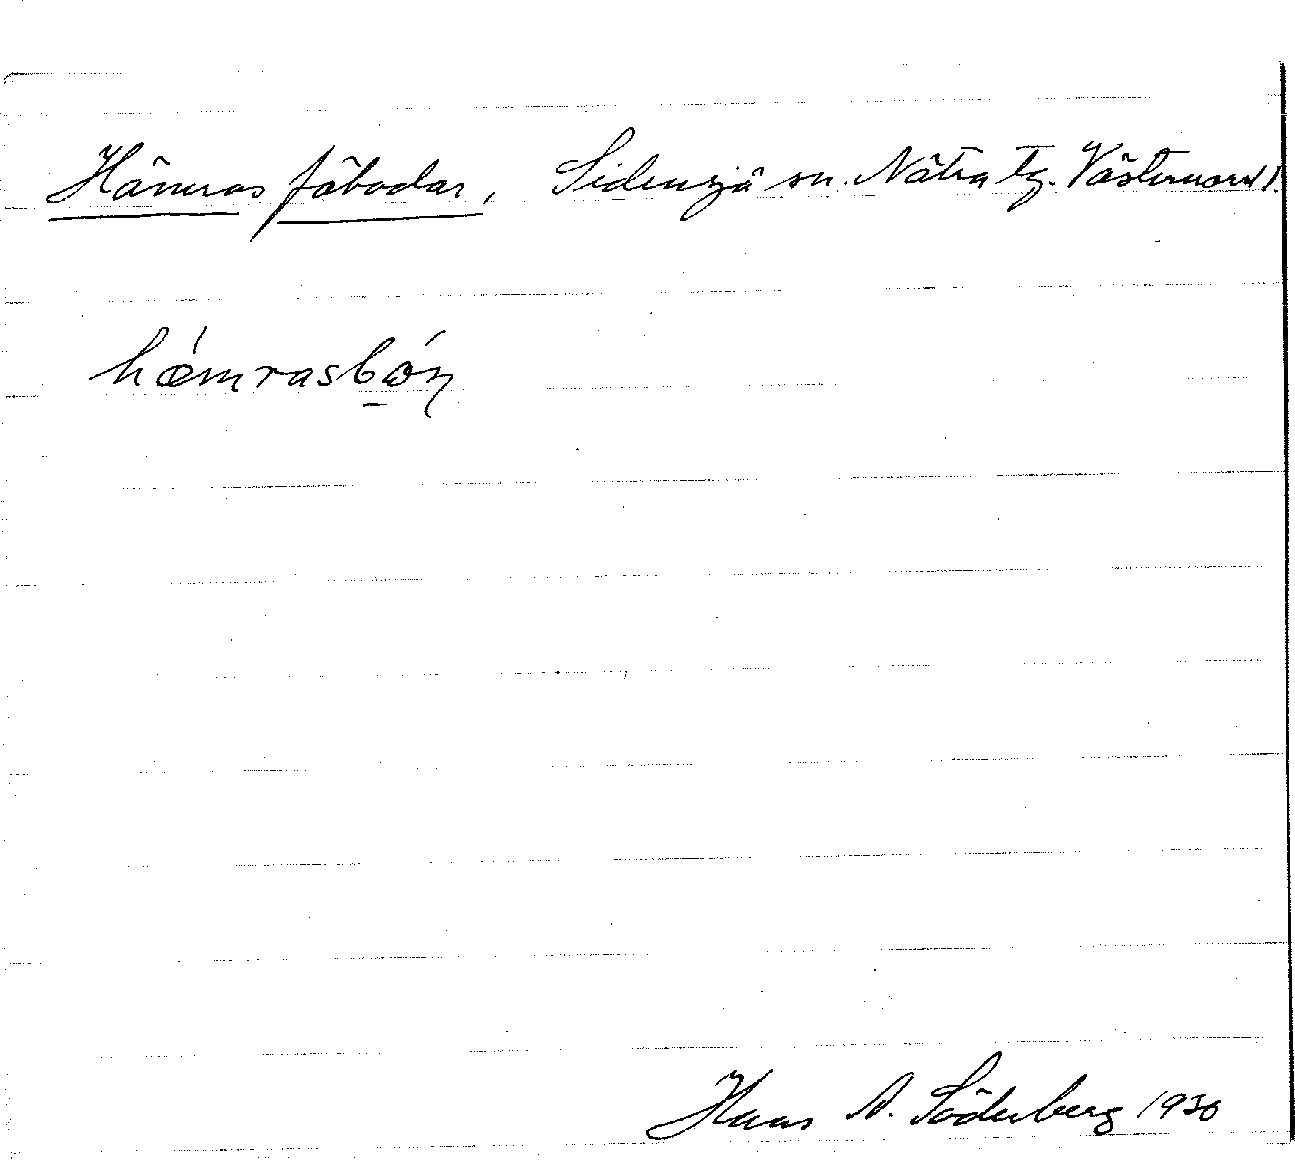 Hämras fäbodar, Sidensjö sn. Nätra tg. Västernorrl.
hǽmrasbón
Hans A. Söderberg 1930